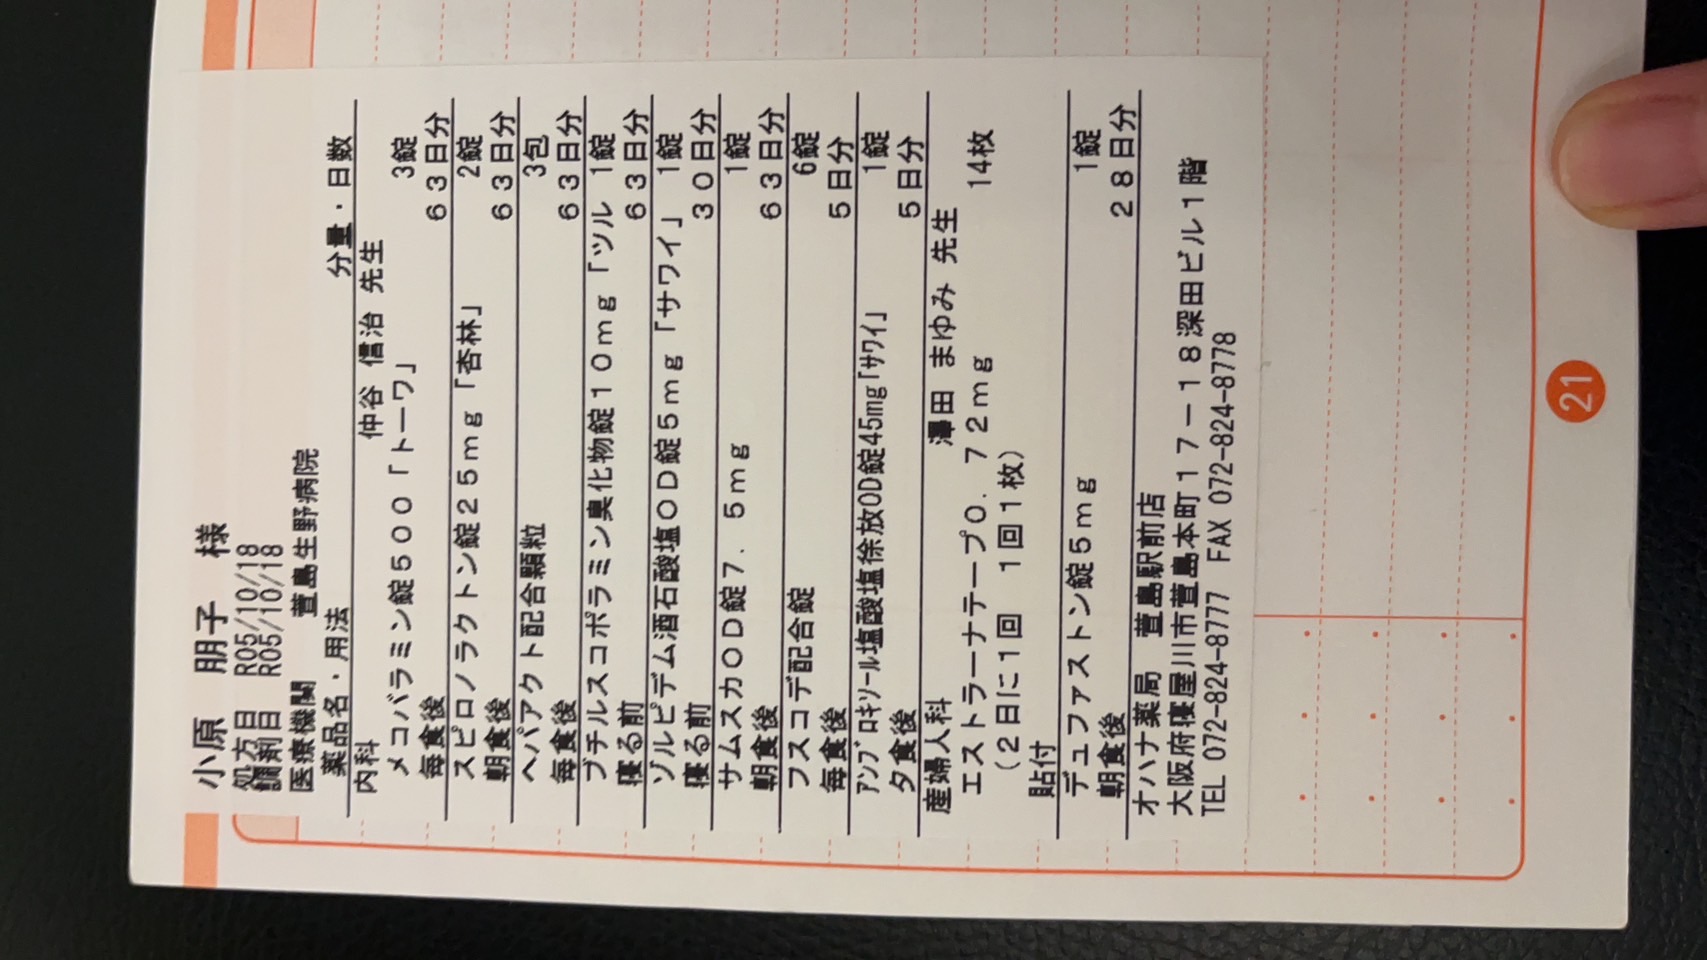 小原 朋子 様
処方日 R05/10/18
調剤日 R05/10/18
医療機関 萱島生野病院
薬品名・用法 分量・日数
内科 仲谷 信治 先生
メコバラミン錠500「トーワ」 3錠
毎食後 63日分
スピロノラクトン錠25mg「杏林」 2錠
朝食後 63日分
ヘパアクト配合顆粒 3包
毎食後 63日分
ブチルスコポラミン臭化物錠10mg「ツル 1錠
寝る前 63日分
ゾルピデム酒石酸塩OD錠5mg「サワイ」 1錠
寝る前 30日分
サムスカOD錠7.5mg 1錠
朝食後 63日分
フスコデ配合錠 6錠
毎食後 5日分
アンブロキソール塩酸塩徐放OD錠45mg「サワイ」 1錠
夕食後 5日分
産婦人科 澤田 まゆみ 先生
エストラーナテープ0.72mg 14枚
(2日に1回 1回1枚)
貼付
デュファストン錠5mg 1錠
朝食後 28日分
オハナ薬局 萱島駅前店
大阪府寝屋川市萱島本町17-18深田ビル1階
TEL 072-824-8777 FAX 072-824-8778
21